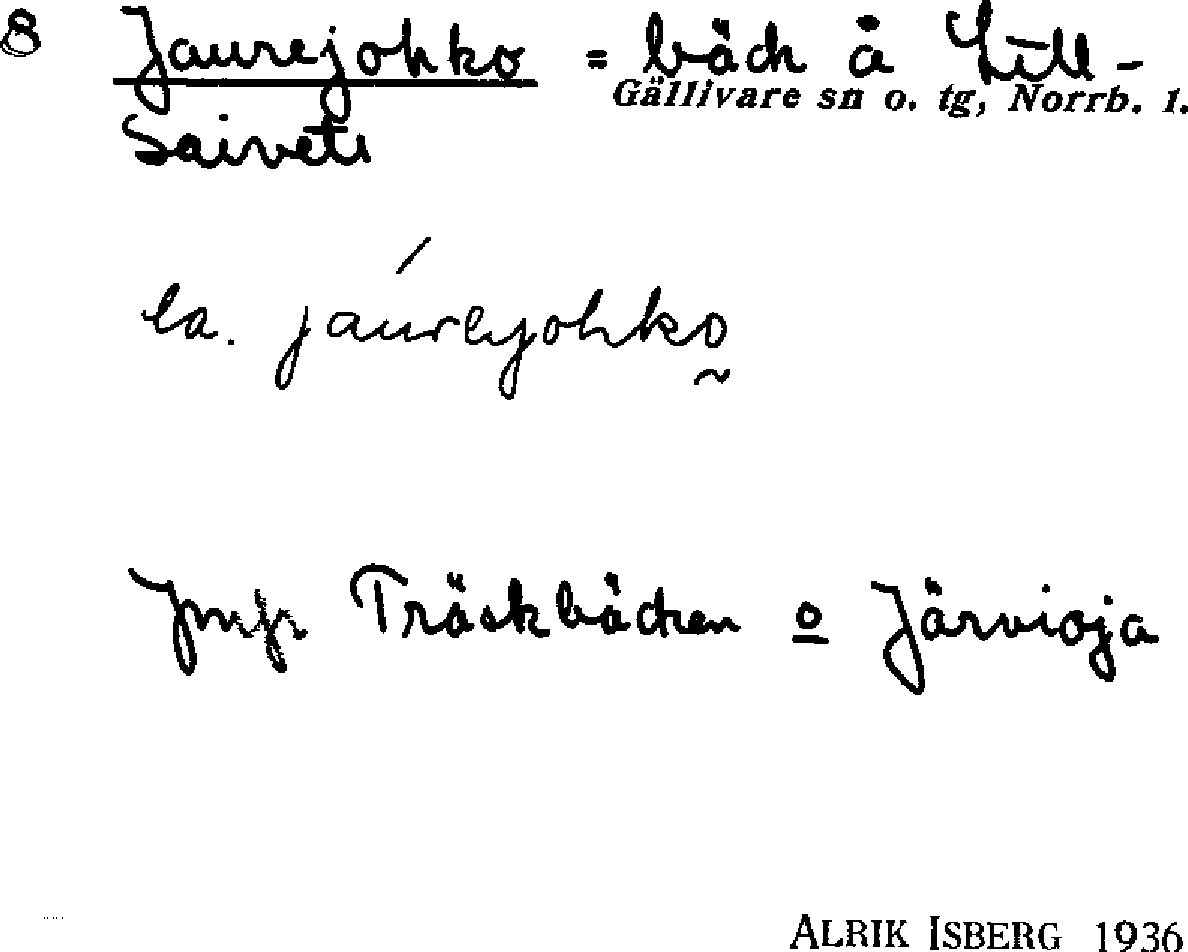 8 Jaurejohko = bäck å Lill-
Gällivare sn o. tg, Norrb. l.
Saivets
la. jaurejohko
Jmfr Träskbäcken o Järvioja
ALRIK ISBERG 1936